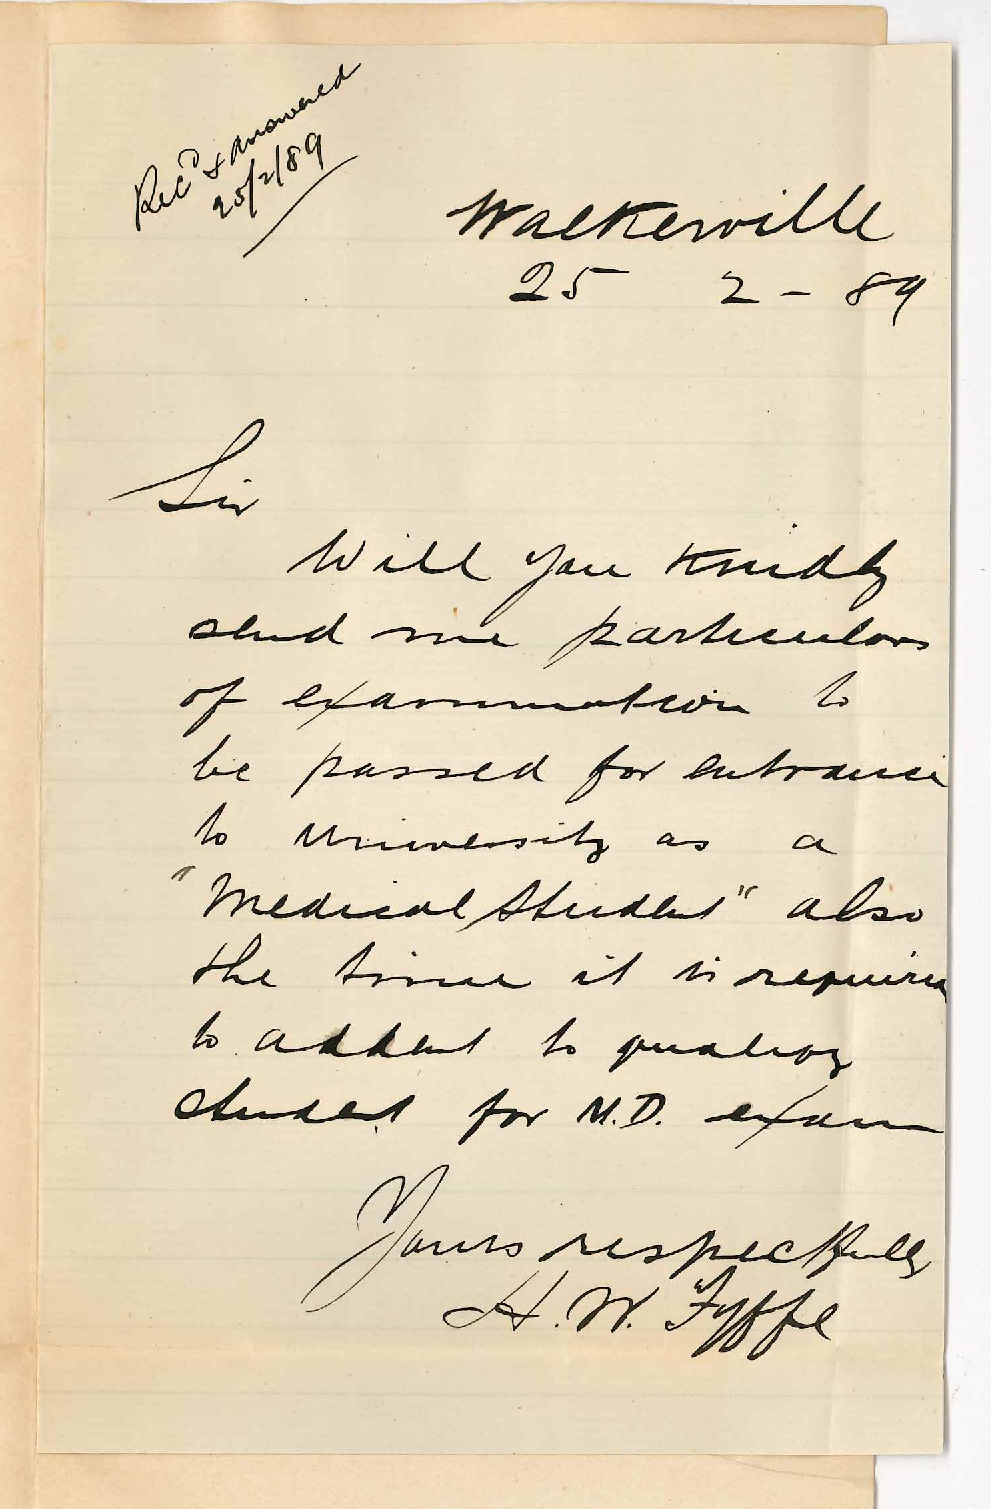 Rec'd & answered
25/2/89
Walkerville
25 2 - 89
Sir
Will you kindly
send me particulars
of examination to
be passed for entrance
to university as a
"Medical Student" also
the time it is required
to attend to qualify
student for M.D. exam
Yours respectfully
H. W. Fyffe